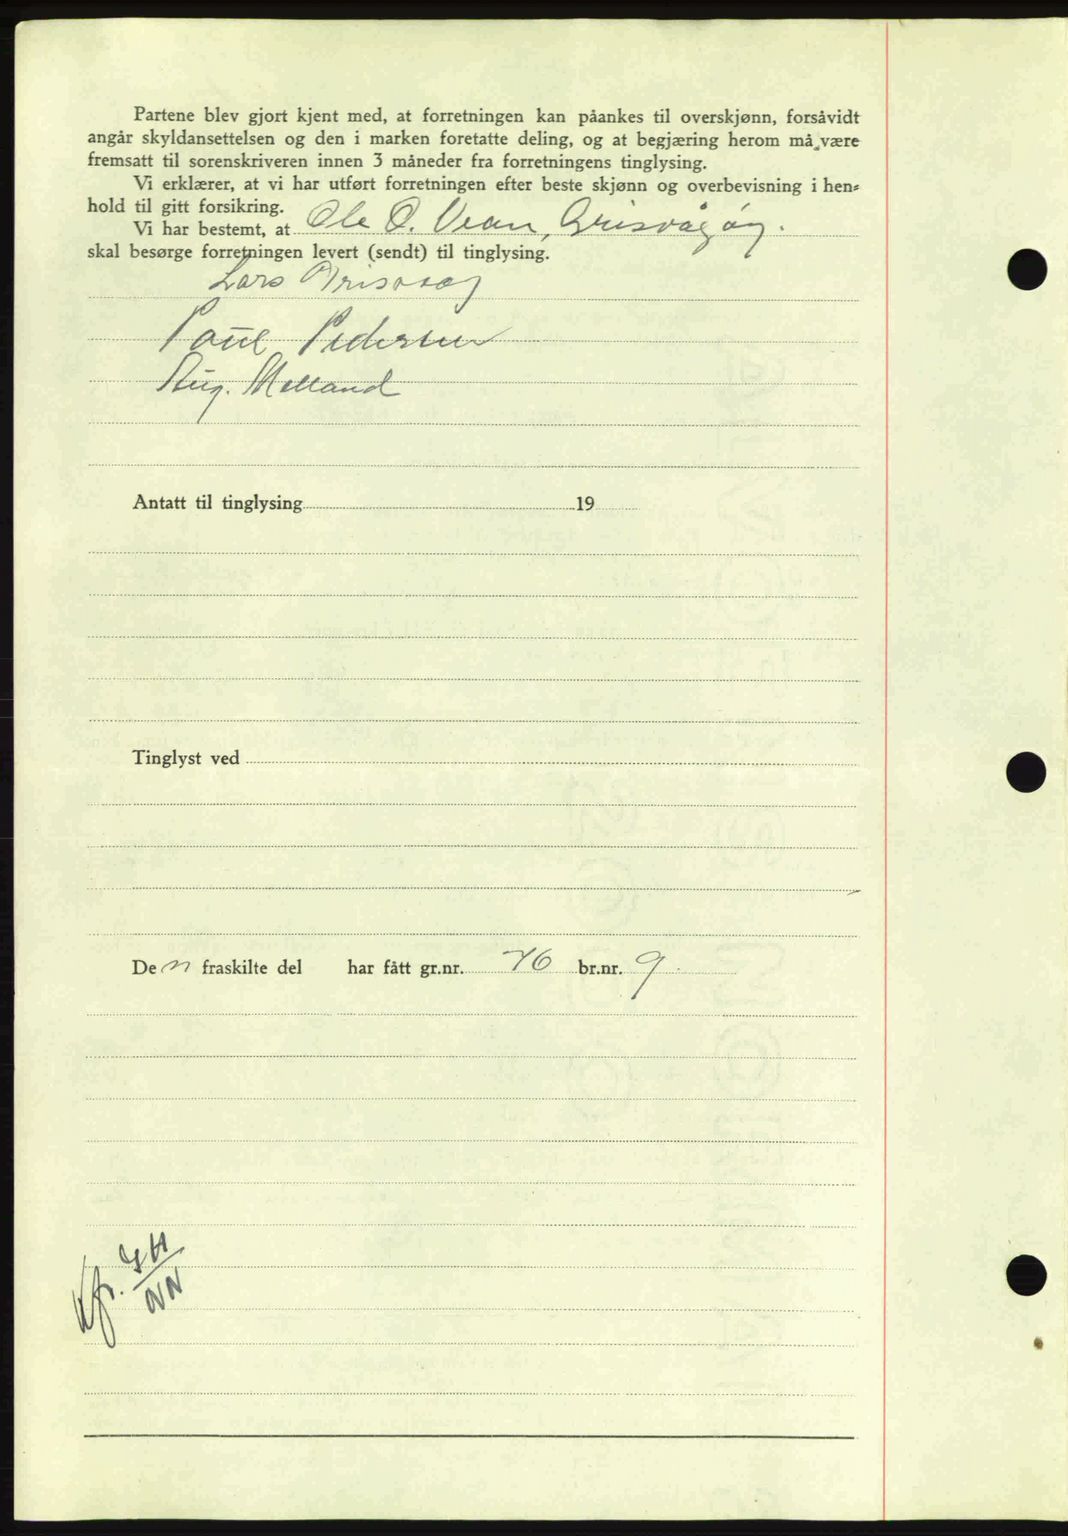 Partene blev gjort kjent med, at forretningen kan påankes til overskjønn, forsåvidt
angår skyldansettelsen og den i marken foretatte deling, og at begjæring herom må være
fremsatt til sorenskriveren innen 3 måneder fra forretningens tinglysing.
Vi erklærer, at vi har utført forretningen efter beste skjønn og overbevisning i hen-
hold til gitt forsikring.
Vi har bestemt, at Ole O. Vean, Grisvågøy.
skal besørge forretningen levert (sendt) til tinglysing.
Lars Grisvaag
Paul Pedersen
Aug. Melland
Antatt til tinglysing 19
Tinglyst ved
Den fraskilte del har fått gr.nr. 76 br.nr. 9